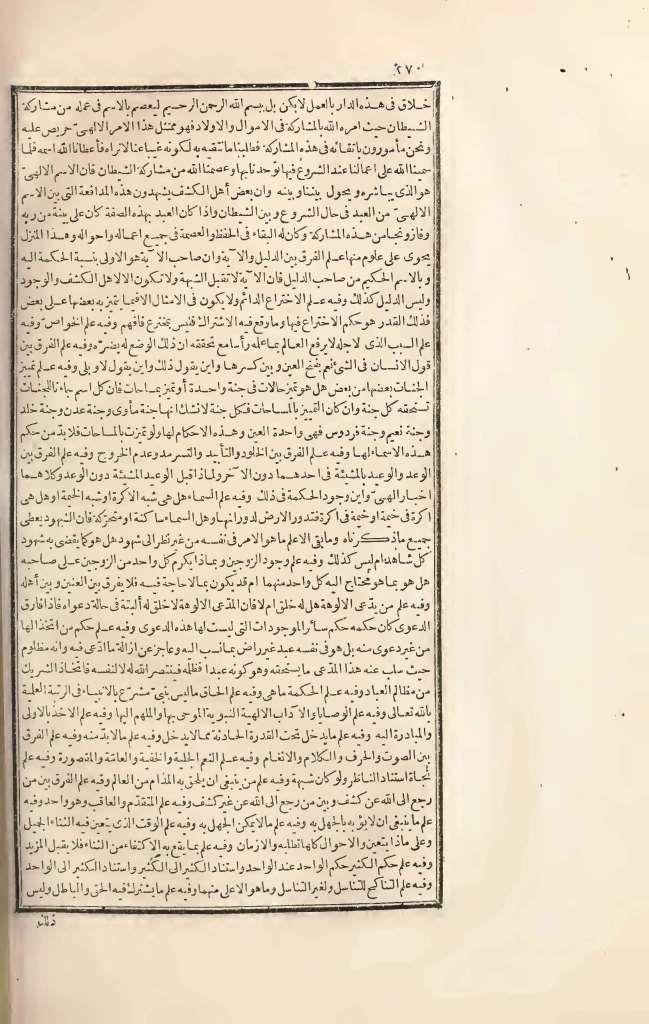 ٢٧٠
خلاق في هذه الدار بالعمل لايكن بل بسم الله الرحمن الرحيم ليعصم بالاسم في عمله من مشاركة
الشيطان حيث امره الله بالمشاركة في الاموال والاولاد فهو ممتثل هذا الامر الالهيّ حريص عليه
ونحن مأمورون باتقائه في هذه المشاركة فطلبنا ما نتقيه به لكونه غيبا عنا لانراه فأعطانا الله اسمه فلما
سمينا الله على اعمالنا عند الشروع فيها توحدنا بها وعصمنا الله من مشاركة الشيطان فان الاسم الالهيّ
هو الذي يباشره ويحول بيننا وبينه وان بعض أهل الكشف يشهدون هذه المدافعة التي بين الاسم
الالهيّ من العبد في حال الشروع وبين الشيطان واذا كان العبد بهذه الصفة كان على بينة من ربه
وفاز ونجا من هذه المشاركة وكان له البقاء في الحفظ والعصمة في جميع اعماله واحواله وهذا المنزل
يحوى على علوم منها علم الفرق بين الدليل والآية وان صاحب الآية هو الاولى بنسبة الحكمة اليه
وبالاسم الحكيم من صاحب الدليل فان الآية لا تقبل الشبهة ولا تكون الا لاهل الكشف والوجود
وليس الدليل كذلك وفيه علم الاختراع الدائم ولا يكون في الامثال الا فيما يتميز به بعضها على بعض
فذلك القدر هو حكم الاختراع فيها وما وقع فيه الاشتراك فليس بمخترع فافهم وفيه علم الخواص وفيه
علم السبب الذي لاجله لايرفع العالم بما علمه رأسا مع تحققه ان ذلك الوضع له يضره وفيه علم الفرق بين
قول الانسان في الشئ نعم بفتح العين وبين كسرها واين يقول ذلك واين يقول لا وبلى وفيه علم تميز
الجنات بعضها من بعض هل هو تميز حالات في جنة واحدة أو تميز بمساحات فان كل اسم جاءنا للجنات
تستحقه كل جنة وان كان التمييز بالمساحات فكل جنة لانشك انها جنة مأوى وجنة عدن وجنة خلد
وجنة نعيم وجنة فردوس فهي واحدة العين وهذه الاحكام لها ولو تميزت بالمساحات فلا بدّ من حكم
هذه الاسماء لها وفيه علم الفرق بين الخلود والتأبيد والتسرمد وعدم الخروج وفيه علم الفرق بين
الوعد والوعيد بالمشيئة في احدهما دون الآخر ولماذا قبل الوعيد المشيئة دون الوعد وكلاهما
اخبار الهيّ واين وجود الحكمة في ذلك وفيه علم السماء هل هي شبه الاكرة او شبه الخيمة او هل هي
اكرة في خيمة او خيمة في اكرة فتدور الارض لدورانها وهل السماء ساكنة او متحرّكة فان الشهود يعطى
جميع ماذكرناه ومابقى الا علم ما هو الامر في نفسه من غير نظر الى شهود هل هو كما يقضى به شهود
كل شاهد ام ليس كذلك وفيه علم وجود الزوجين وبماذا يكرم كل واحد من الزوجين على صاحبه
هل هو بما هو محتاج اليه كل واحد منهما ام قد يكون بما لا حاجة فيه فلا يفرق بين العنين وبين أهله
وفيه علم من يدّعى الالوهة هل له خلق ام لا فان المدّعى الالوهة لا خلق له ألبتة في حالة دعواه فاذا فارق
الدعوى كان حكمه حكم سائر الموجودات التي ليست لها هذه الدعوى وفيه علم حكم من اتخذ الها
من غير دعوى منه بل هو في نفسه عبد غير راض بما نسب اليه وعاجز عن ازالة ما ادّعى فيه وانه مظلوم
حيث سلب عنه هذا المدّعى ما يستحقه وهو كونه عبدا فظلمه فينتصر الله له لا لنفسه فاتخاذ الشريك
من مظالم العباد وفيه علم الحكمة ماهي وفيه علم الحاق ماليس بنبيّ مشرّع بالانبياء في الرتبة العلمية
بالله تعالى وفيه علم الوصايا والآداب الالهية النبوية الموحى بها والملهم اليها وفيه علم الاخذ بالاولى
والمبادرة اليه وفيه علم مايدخل تحت القدرة الحادثة مما لايدخل وفيه علم مالابدّ منه وفيه علم الفرق
بين الصوت والحرف والكلام والانغام وفيه علم النعم الجلية والخفية والعامّة والمقصورة وفيه علم
نجاة استناد الناظر ولو كان شبهة وفيه علم من ينبغي ان يلحق به المذامّ من العالم وفيه علم الفرق بين من
رجع الى الله عن كشف وبين من رجع الى الله عن غير كشف وفيه علم المتقدّم والعاقب وهو واحد وفيه
علم ما ينبغي ان لايؤبه به بالجهل به وفيه علم مالايمكن الجهل به وفيه علم الوقت الذي يتعين فيه الثناء الجميل
وعلى ماذا يتعين والاحوال كلها تطلبه والازمان وفيه علم بما يقع به الاكتفاء من الثناء فلا يقبل المزيد
وفيه علم حكم الكثير حكم الواحد عند الواحد واستناد الكثير الى الكثير واستناد الكثير الى الواحد
وفيه علم التناكح للتناسل ولغير التناسل وما هو الاعلى منهما وفيه علم مايشترك فيه الحق والباطل وليس
ذلك